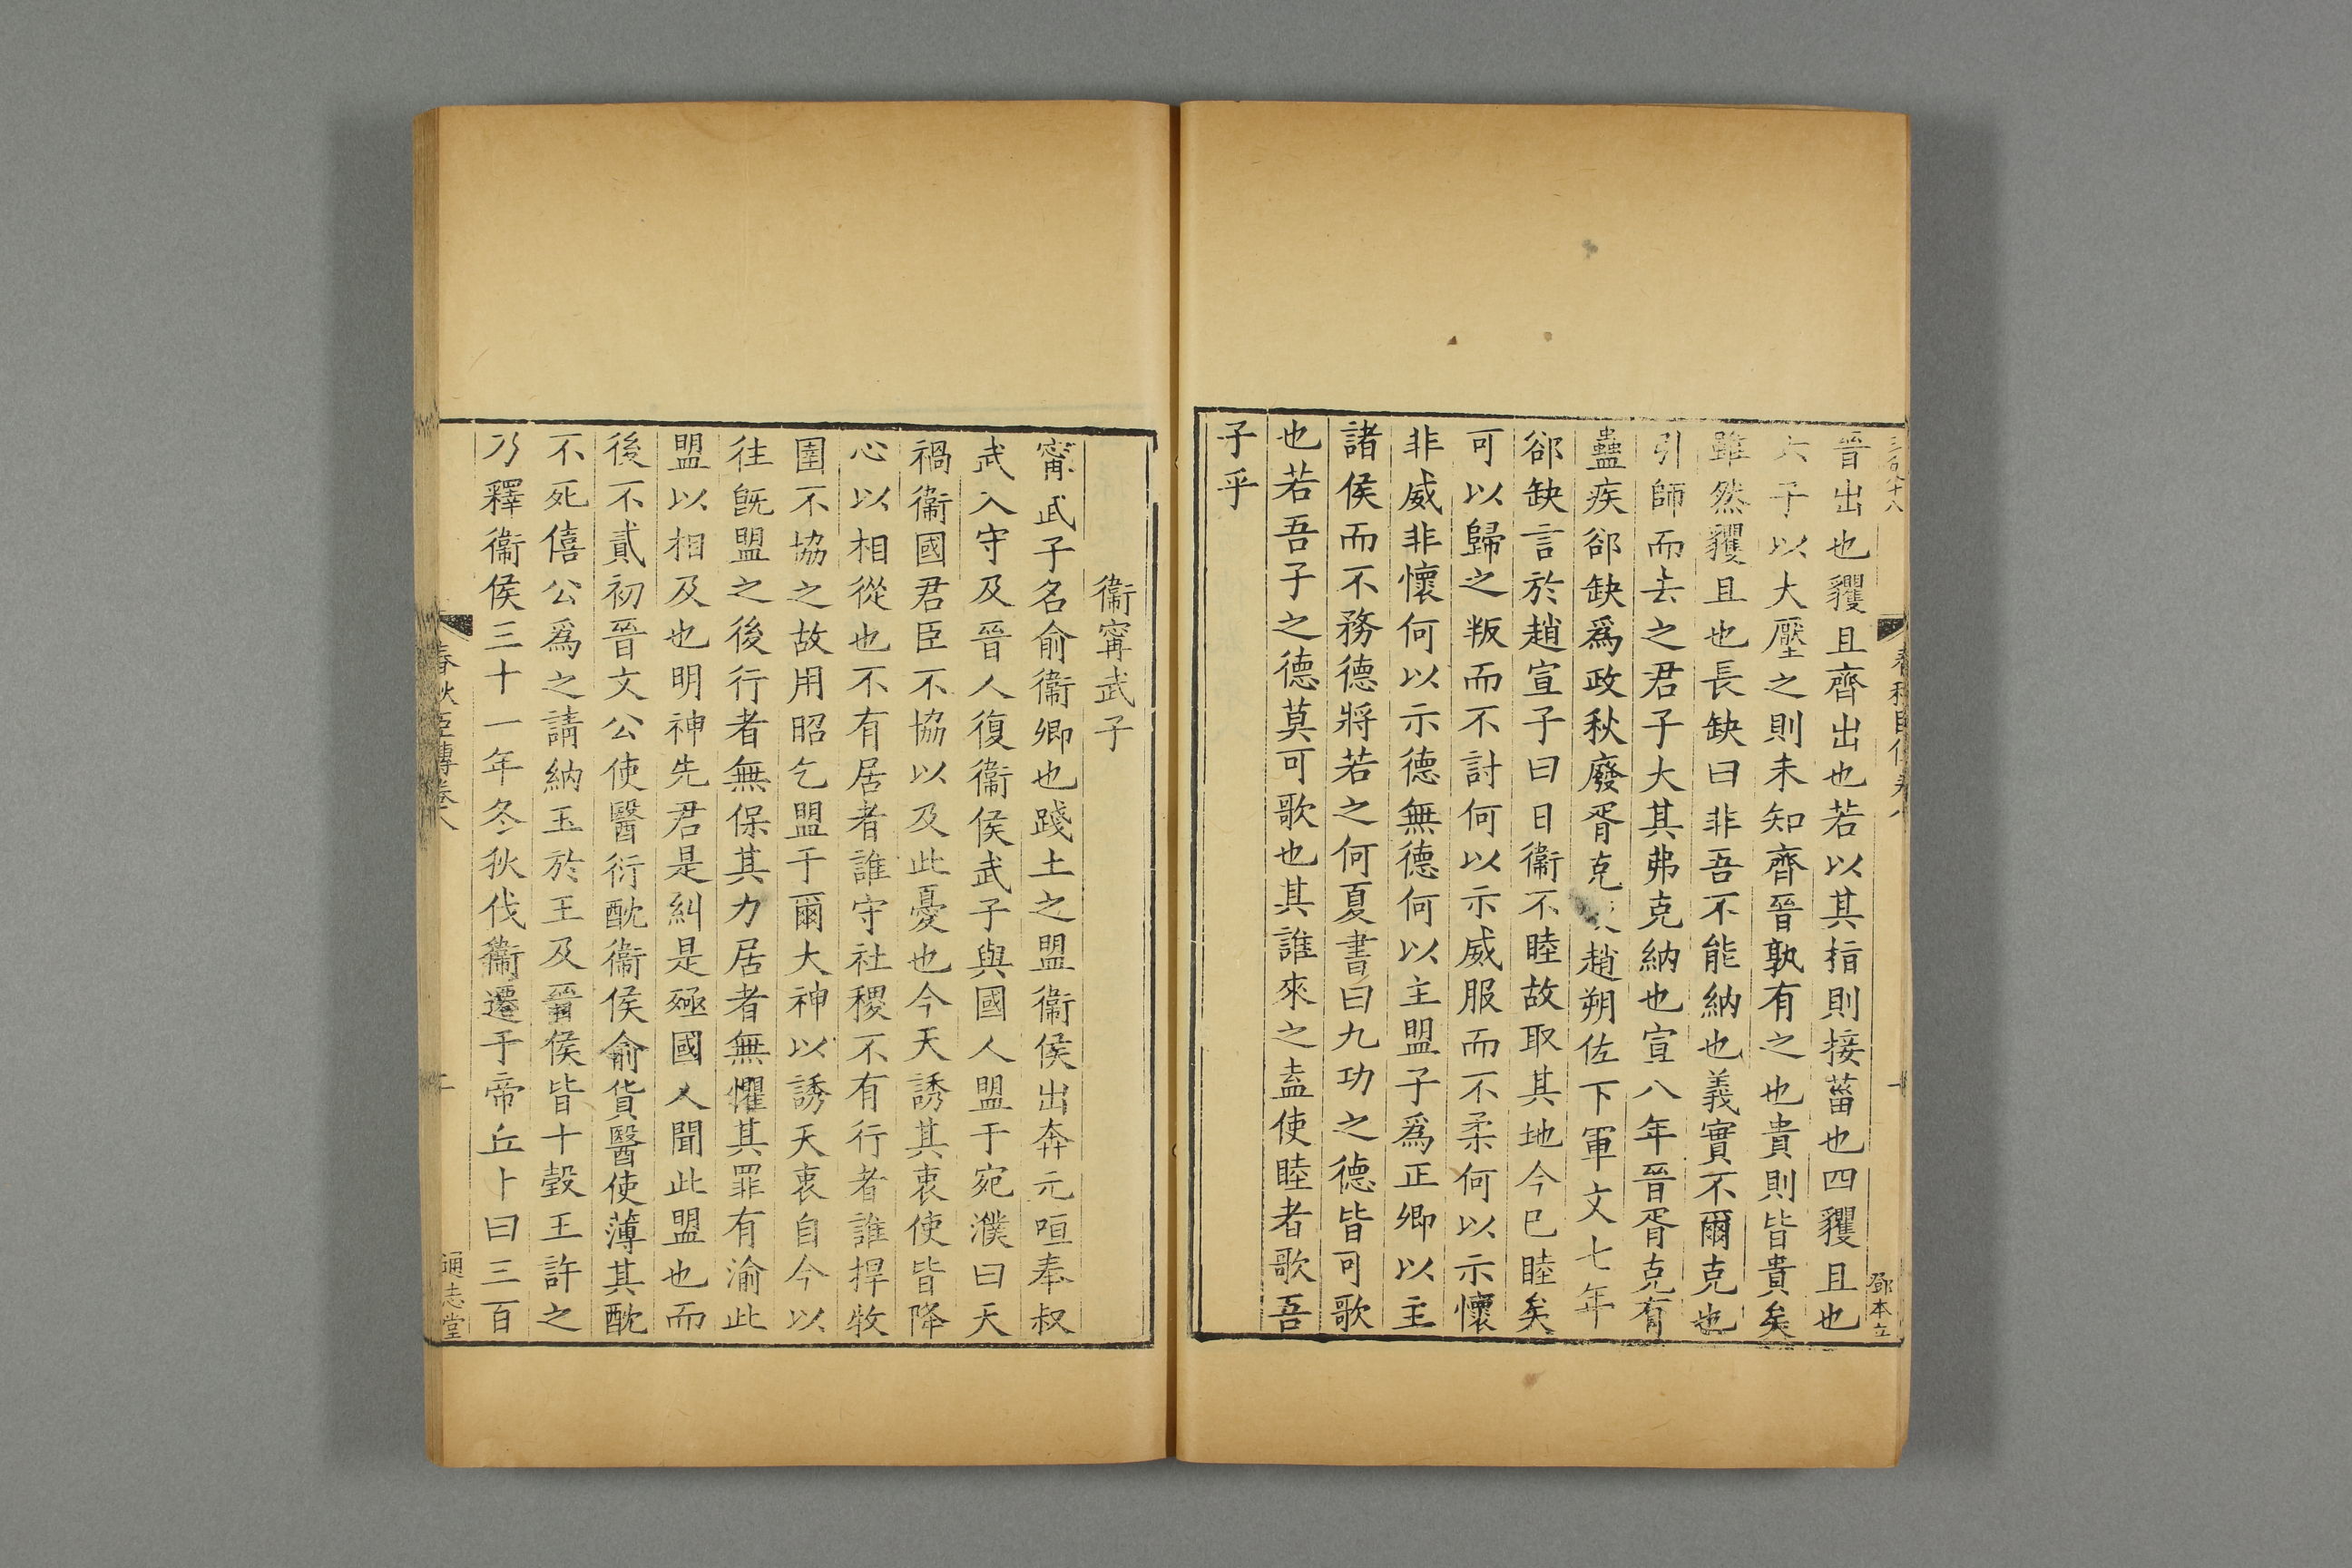 晉出也貜且齊出也若以其指則接菑也四貜且也
六子以大壓之則未知齊晉孰有之也貴則皆貴矣
雖然貜且也長缺曰非吾不能納也義實不爾克也
引師而去之君子大其弗克納也宣八年晉胥克有
蠱疾郤缺爲政秋廢胥克 趙朔佐下軍文七年
郤缺言於趙宣子曰日衞不睦故取其地今已睦矣
可以歸之叛而不討何以示威服而不柔何以示懷
非威非懷何以示德無德何以主盟子爲正卿以主
諸侯而不務德將若之何夏書曰九功之德皆可歌
也若吾子之德莫可歌也其誰來之盍使睦者歌吾
子乎
鄧本立
衞甯武子
甯武子名俞衞卿也踐土之盟衞侯出奔元咺奉叔
武入守及晉人復衞侯武子與國人盟于宛濮曰天
禍衞國君臣不協以及此憂也今天誘其衷使皆降
心以相從也不有居者誰守社稷不有行者誰捍牧
圉不協之故用昭乞盟于爾大神以誘天衷自今以
往旣盟之後行者無保其力居者無懼其罪有渝此
盟以相及也明神先君是糾是殛國人聞此盟也而
後不貳初晉文公使醫衍酖衞侯俞貨醫使薄其酖
不死僖公爲之請納玉於王及晉侯皆十瑴王許之
乃釋衞侯三十一年冬狄伐衞遷于帝丘卜曰三百
春秋臣傳卷八
通志堂